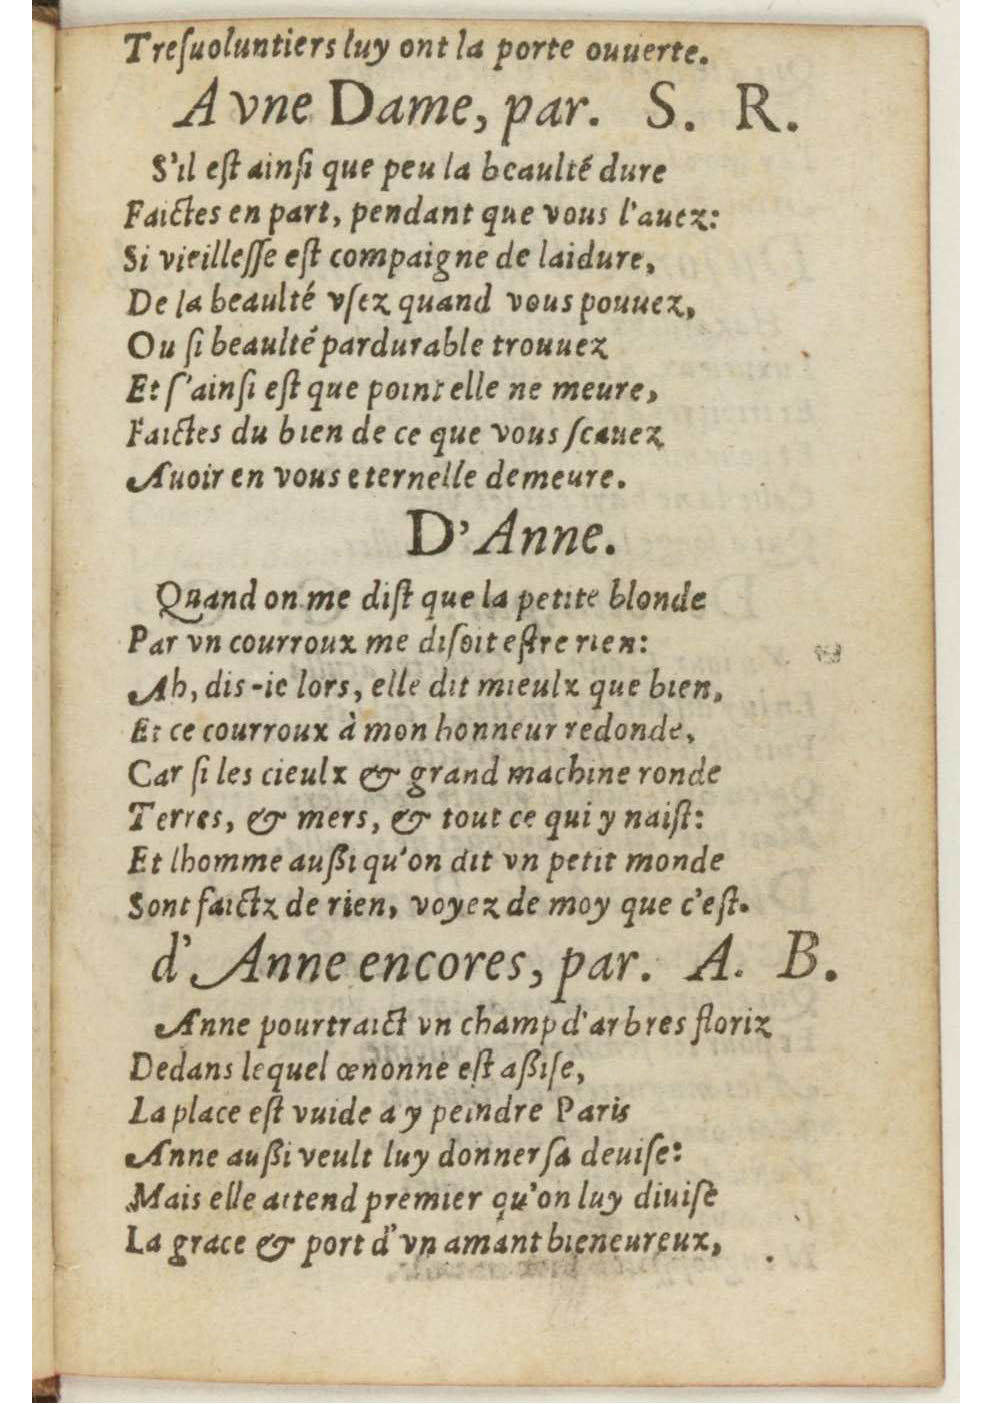 Treſuoluntiers luy ont la porte ouuerte.
A vne Dame, par. S. R.
S'il eſt ainſi que peu la beaulté dure
Faictes en part, pendant que vous l'auez:
Si vieilleſſe eſt compaigne de laidure,
De la beaulté vſez quand vous pouuez,
Ou ſi beaulté pardurable trouuez
Et ſ'ainſi eſt que point elle ne meure,
Faictes du bien de ce que vous ſcauez
Auoir en vous eternelle demeure.
D'Anne.
Quand on me diſt que la petite blonde
Par vn courroux me diſoit eſtre rien:
Ah, dis-ie lors, elle dit mieulx que bien,
Et ce courroux à mon honneur redonde,
Car ſi les cieulx & grand machine ronde
Terres, & mers, & tout ce qui y naiſt:
Et lhomme außi qu'on dit vn petit monde
Sont faictz de rien, voyez de moy que c'eſt.
d'Anne encores, par. A. B.
Anne pourtraict vn champ d'arbres floriz
Dedans lequel œnonne eſt aßiſe,
La place eſt vuide a y peindre Paris
Anne außi veult luy donner ſa deuiſe:
Mais elle attend premier qu'on luy diuiſe
La grace & port d'vn amant bieneureux,